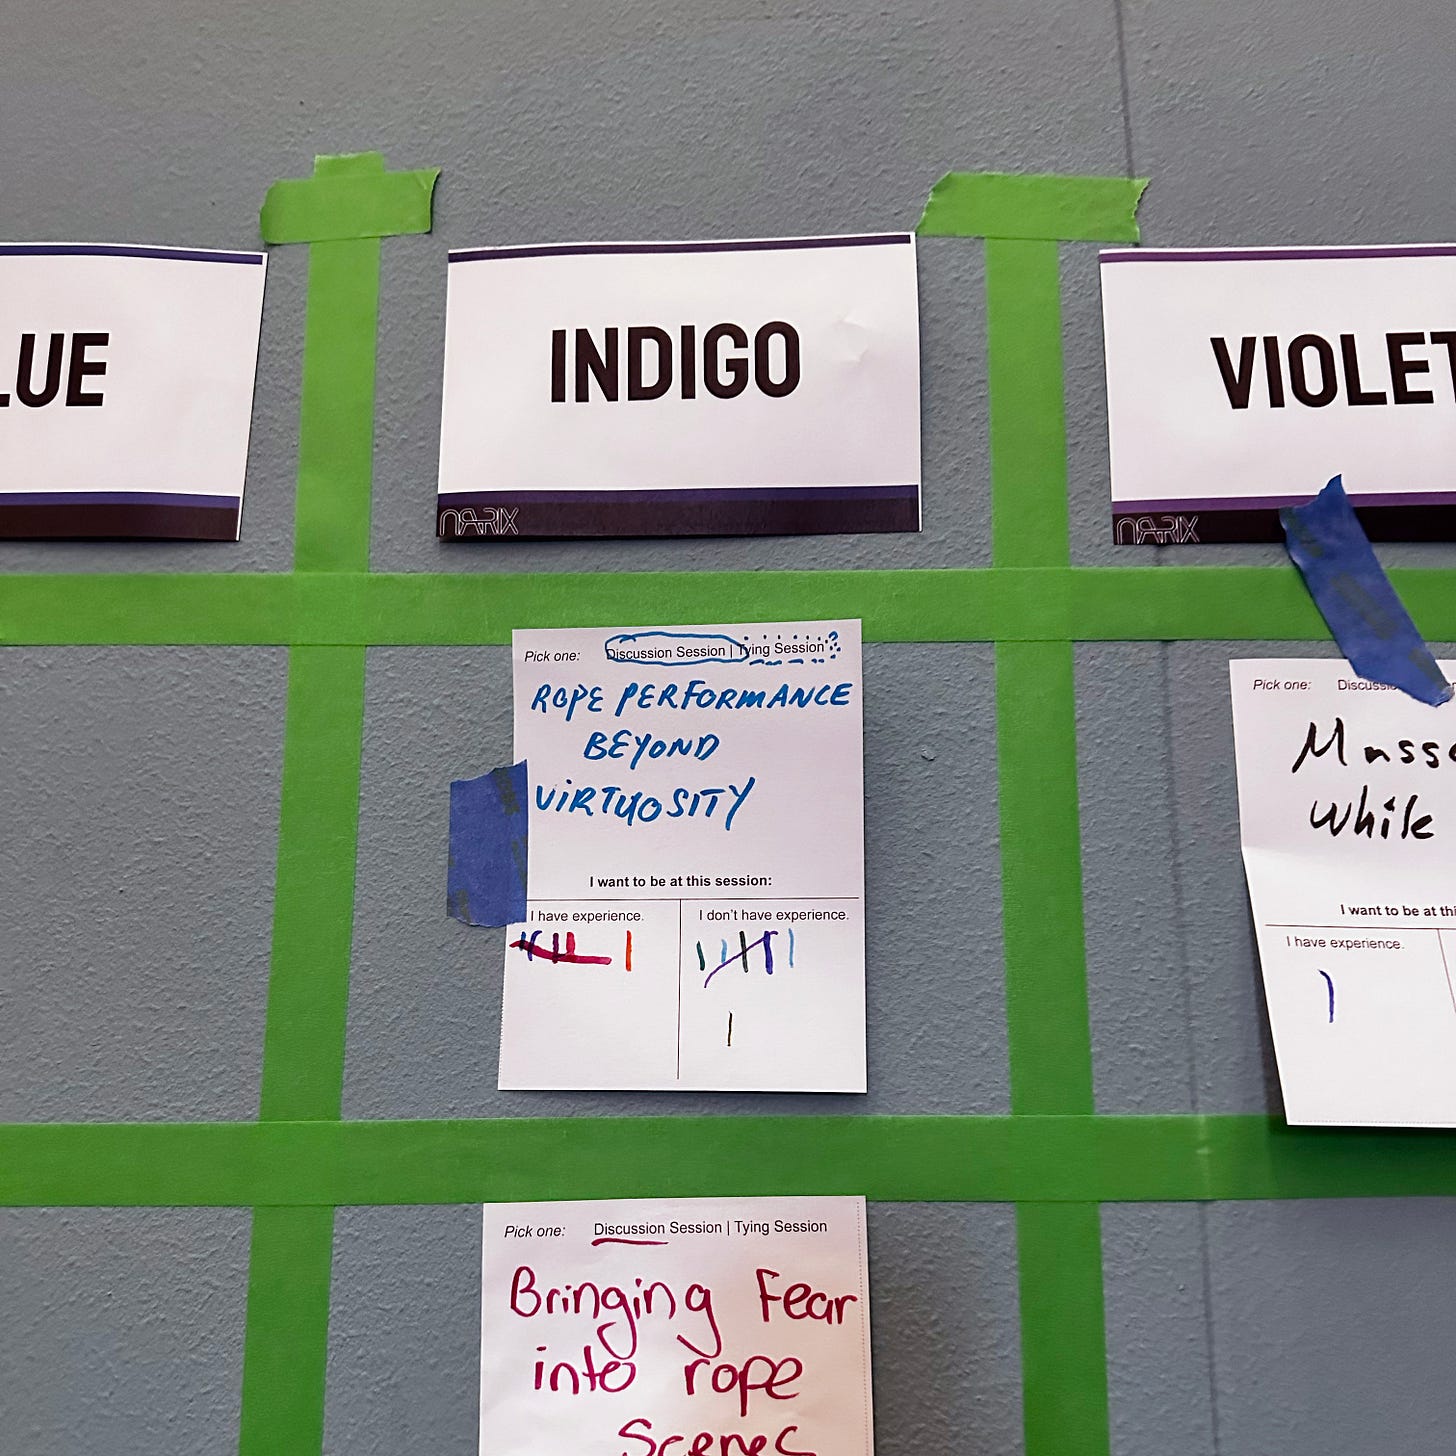 LUE
INDIGO
VIOLET
Pick one: Discussion Session | Tying Session?
ROPE PERFORMANCE
BEYOND
VIRTUOSITY
I want to be at this session:
I have experience.
I don't have experience.
Pick one:
While
I want to be at
I have experience.
Pick one: Discussion Session | Tying Session
Bringing Fear
into rope
Scenes